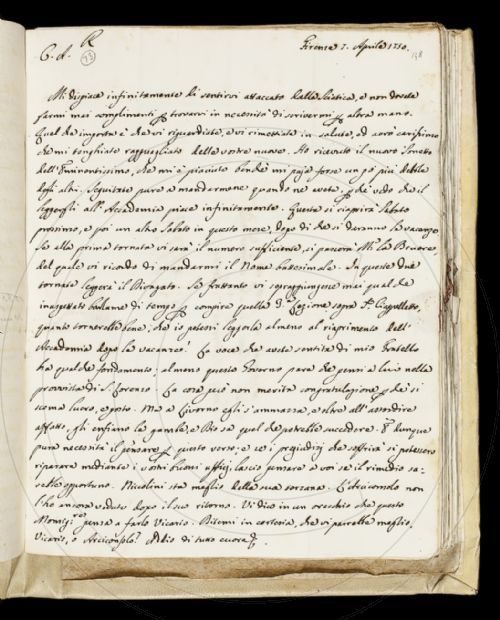 R
C. A. 73
Firenze 7. Aprile 1750. 158
Mi dispiace infinitamente di sentirvi attaccato dalla Sciatica, e non dovete
farmi mai complimenti trovarvi in necessità di scrivermi altra mano.
Quel che importa è che vi riguardiate, e vi rimettiate in salute, ed avrò carissimo
che mi tenghiate ragguagliato delle vostre nuove. Ho ricevuto il nuovo Sonetto
dell'Eminentissimo, che mi è piaciuto benchè mi paja forse un pò più debile
degli altri. Seguitate pure a mandarmene quando ne avete, che vedo che il
leggergli all'Accademia piace infinitamente. Questa si riaprirà Sabato
prossimo, e poi un altro Sabato in questo mese, dopo di che si daranno le vacanze
Se alla prima tornata vi sarà il numero sufficiente, si passerà
del quale vi ricordo di mandarmi il Nome battesimale. In queste due
tornate leggerà il Se frattanto vi sopraggiungesse mai qual che
inaspettato barlume di tempo compire quella Lezione sopra
quanto tornerebbe bene, che io potessi leggerla almeno al riaprimento dell'
Accademia dopo le vacanze! La voce che avete sentita di mio Fratello
ha qualche fondamento, almeno questo Governo pare che pensi a lui nella
provvista di S. Lorenzo. La cosa però non merita congratulazione, che si
scema lucro, e posto. Ma a Livorno egli s'ammazza, e oltre all'assordire
affatto, gli enfiano le gambe, e Dio sa quel che potrebbe succedere. dunque
pura necessità il pensare questo verso, e se i pregiudizj che soffrirà si potessero
riparare mediante i vostri buoni uffizj, lascio pensare a voi se il rimedio sa-
rebbe opportuno. Niccolini sta meglio della sua terzana. L'Arcivescovo non
l'ho ancora veduto dopo il suo ritorno. Vi dico in un orecchio che questo
Monsig.re pensa a farlo Vicario. Ditemi in cortesia, che vi parrebbe meglio,
Vicario, o Addio di tutto cuore